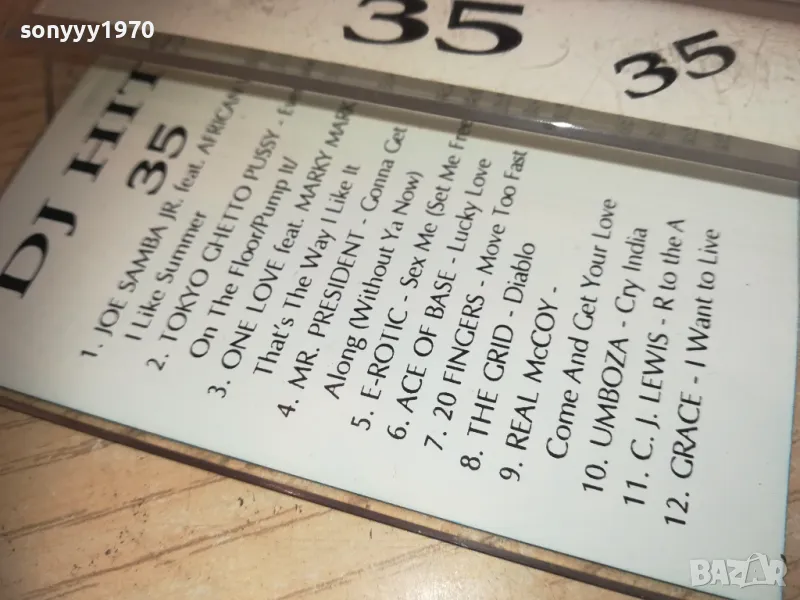 sonyyy1970
35
35
DJ HIT
35
1. JOE SAMBA JR. feat. AFRICAN
I Like Summer
2. TOKYO GHETTO PUSSY -
On The Floor/Pump It/
3. ONE LOVE feat. MARKY MARK
That's The Way I Like It
4. MR. PRESIDENT - Gonna Get
Along (Without Ya Now)
5. E-ROTIC - Sex Me (Set Me Free
6. ACE OF BASE - Lucky Love
7. 20 FINGERS - Move Too Fast
8. THE GRID - Diablo
9. REAL McCOY -
Come And Get Your Love
10. UMBOZA - Cry India
11. C. J. LEWIS - R to the A
12. GRACE - I Want to Live
BAZAR
bg